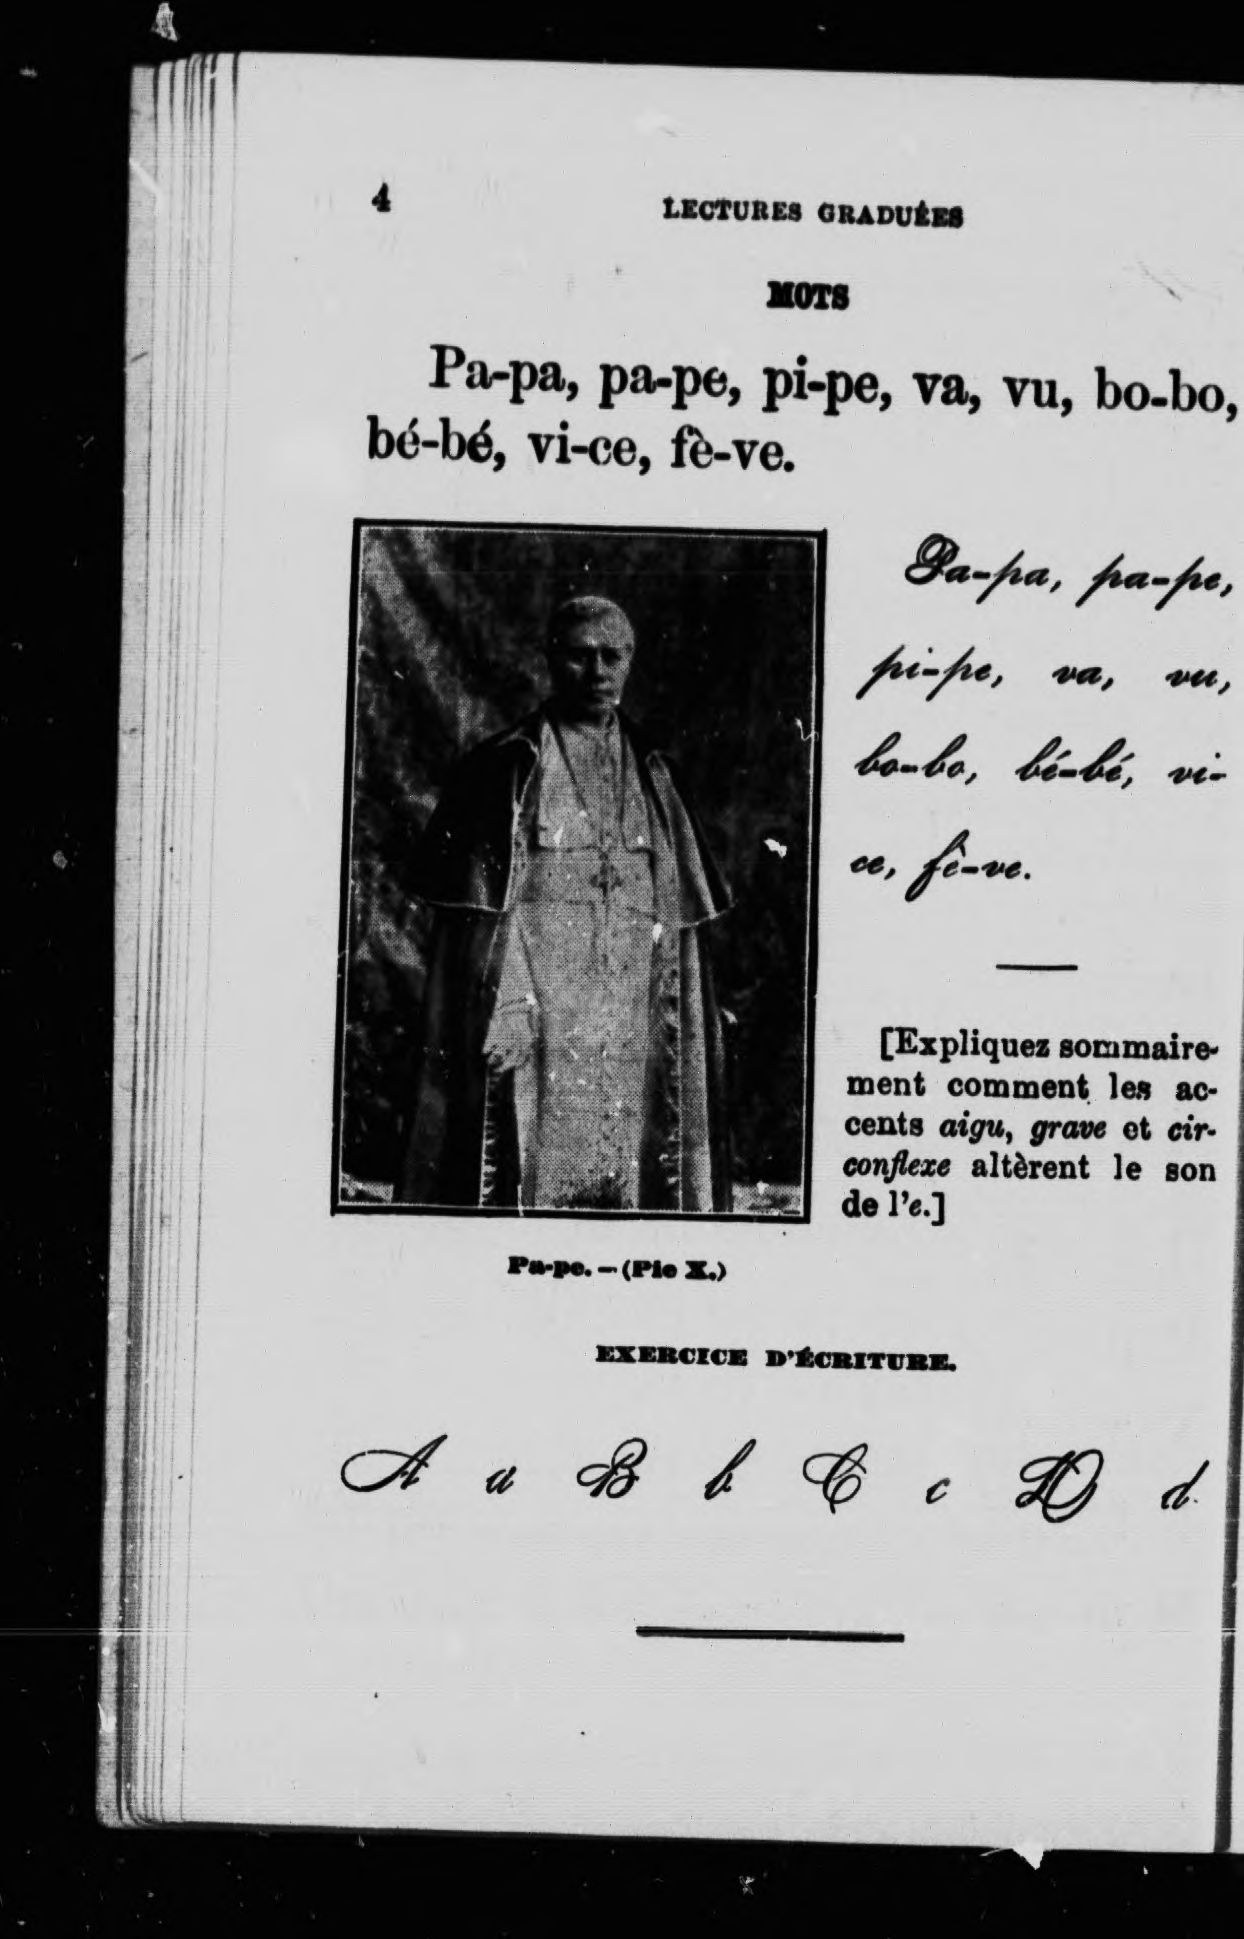 4
LECTURES GRADUÉES
MOTS
Pa-pa, pa-pe, pi-pe, va, vu, bo-bo,
bé-bé, vi-ce, fè-ve.
Pa-pa, pa-pe,
pi-pe, va, vu,
bo-bo, bé-bé, vi-
ce, fè-ve.
[Expliquez sommaire-
ment comment les ac-
cents aigu, grave et cir-
conflexe altèrent le son
de l'e.]
Pa-pe. — (Pie X.)
EXERCICE D'ÉCRITURE.
A a B b C c D d